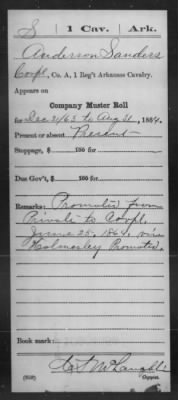 S | 1 Cav. | Ark.
Anderson Sanders
Corpl, Co. A, 1 Reg't Arkansas Cavalry.
Appears on
Company Muster Roll
for Dec 31/63 to Aug 31, 1864.
Present or absent Present
Stoppage, $ 100 for
Due Gov't, $ 100 for
Remarks: Promoted from
Private to Corpl.
June 25, 1864, vice
Holmesley Promoted.
Book mark:
(358)
Copyist.